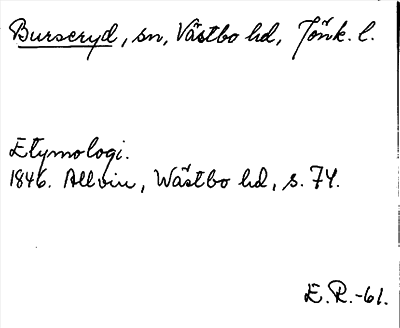 Burseryd, sn, Västbo hd, Jönk. l.
Etymologi.
1846. Allvin, Wästbo hd, s. 74.
E. R.-61.